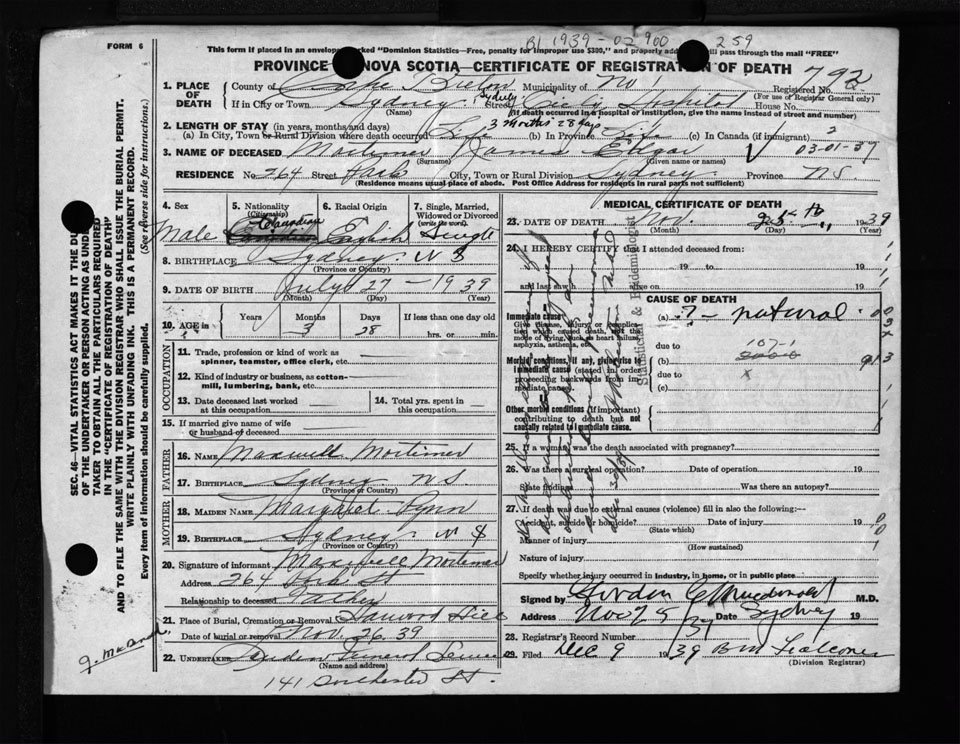 FORM 6
B1 1939-02900 259
This form if placed in an envelope marked "Dominion Statistics—Free, penalty for improper use $300," and properly will pass through the mail "FREE"
PROVINCE NOVA SCOTIA—CERTIFICATE OF REGISTRATION OF DEATH 792
1. PLACE OF DEATH
County of Cape Breton Municipality of No 1 Registered No.
(For use of Registrar General only)
If in City or Town Sydney Street Sydney City Hospital House No.
(Name) (If death occurred in a hospital or institution, give name instead of street and number)
2. LENGTH OF STAY (in years, months and days) 3 months 28 days
(a) In City, Town or Rural Division where death occurred Life (b) In Province Life (c) In Canada (if immigrant) 2
3. NAME OF DECEASED Mortimer James Edgar V 03-01-37
(Surname) (Given name or names)
RESIDENCE No. 264 Street Park City, Town or Rural Division Sydney Province N.S.
(Residence means usual place of abode. Post Office Address for residents in rural parts not sufficient)
4. Sex Male
5. Nationality (Citizenship) Canadian
6. Racial Origin English
7. Single, Married, Widowed or Divorced (write the word) Single
8. BIRTHPLACE Sydney N S
(Province or Country)
9. DATE OF BIRTH July 27 - 1939
(Month) (Day) (Year)
10. AGE in Years Months Days If less than one day
3 28 hrs. or min.
OCCUPATION
11. Trade, profession or kind of work as spinner, teamster, office clerk, etc.
12. Kind of industry or business, as cotton-mill, lumbering, bank, etc.
13. Date deceased last worked at this occupation
14. Total yrs. spent in this occupation
15. If married give name of wife or husband of deceased
FATHER
16. NAME Maxwell Mortimer
17. BIRTHPLACE Sydney N S
(Province or Country)
MOTHER
18. MAIDEN NAME Margaret
19. BIRTHPLACE Sydney N S
(Province or Country)
20. Signature of informant Maxwell Mortimer
Address 264 Park St
Relationship to deceased Father
21. Place of Burial, Cremation or Removal Hill
Date of burial or removal Nov. 26. 39
22. UNDERTAKER Funeral Service
(Name and address)
141 Dorchester St.
MEDICAL CERTIFICATE OF DEATH
23. DATE OF DEATH Nov. 25th 1939
(Month) (Day) (Year)
24. I HEREBY CERTIFY that I attended deceased from:
19 to 19
and last saw h alive on 19
CAUSE OF DEATH
Immediate cause
Give disease, injury or complication which caused death, not the mode of dying, such as heart failure, asphyxia, asthenia, etc.
(a) ? - natural
due to 107-1
Morbid conditions, if any, giving rise to immediate cause (stated in order proceeding backwards from immediate cause)
(b)
due to x
(c)
Other morbid conditions (if important) contributing to death but not causally related to immediate cause
Statistician & Epidemiologist
25. If a woman, was the death associated with pregnancy?
26. Was there a surgical operation? Date of operation 19
State findings Was there an autopsy?
27. If death was due to external causes (violence) fill in also the following:—
Accident, suicide or homicide? Date of injury 19
(State which)
Manner of injury
(How sustained)
Nature of injury
Specify whether injury occurred in industry, in home, or in public place
Signed by Gordon C Macdonald M.D.
Address Nov 25 39 Date Sydney 19
28. Registrar's Record Number
29. Filed Dec 9 1939 B M Falconer
(Division Registrar)
SEC. 46—VITAL STATISTICS ACT MAKES IT THE DUTY
OF THE UNDERTAKER OR PERSON ACTING AS UNDERTAKER TO OBTAIN ALL THE PARTICULARS REQUIRED
IN THE "CERTIFICATE OF REGISTRATION OF DEATH" AND TO FILE THE SAME WITH THE DIVISION REGISTRAR WHO SHALL ISSUE THE BURIAL PERMIT.
WRITE PLAINLY WITH UNFADING INK. THIS IS A PERMANENT RECORD.
Every item of information should be carefully supplied. (See reverse side for instructions.)